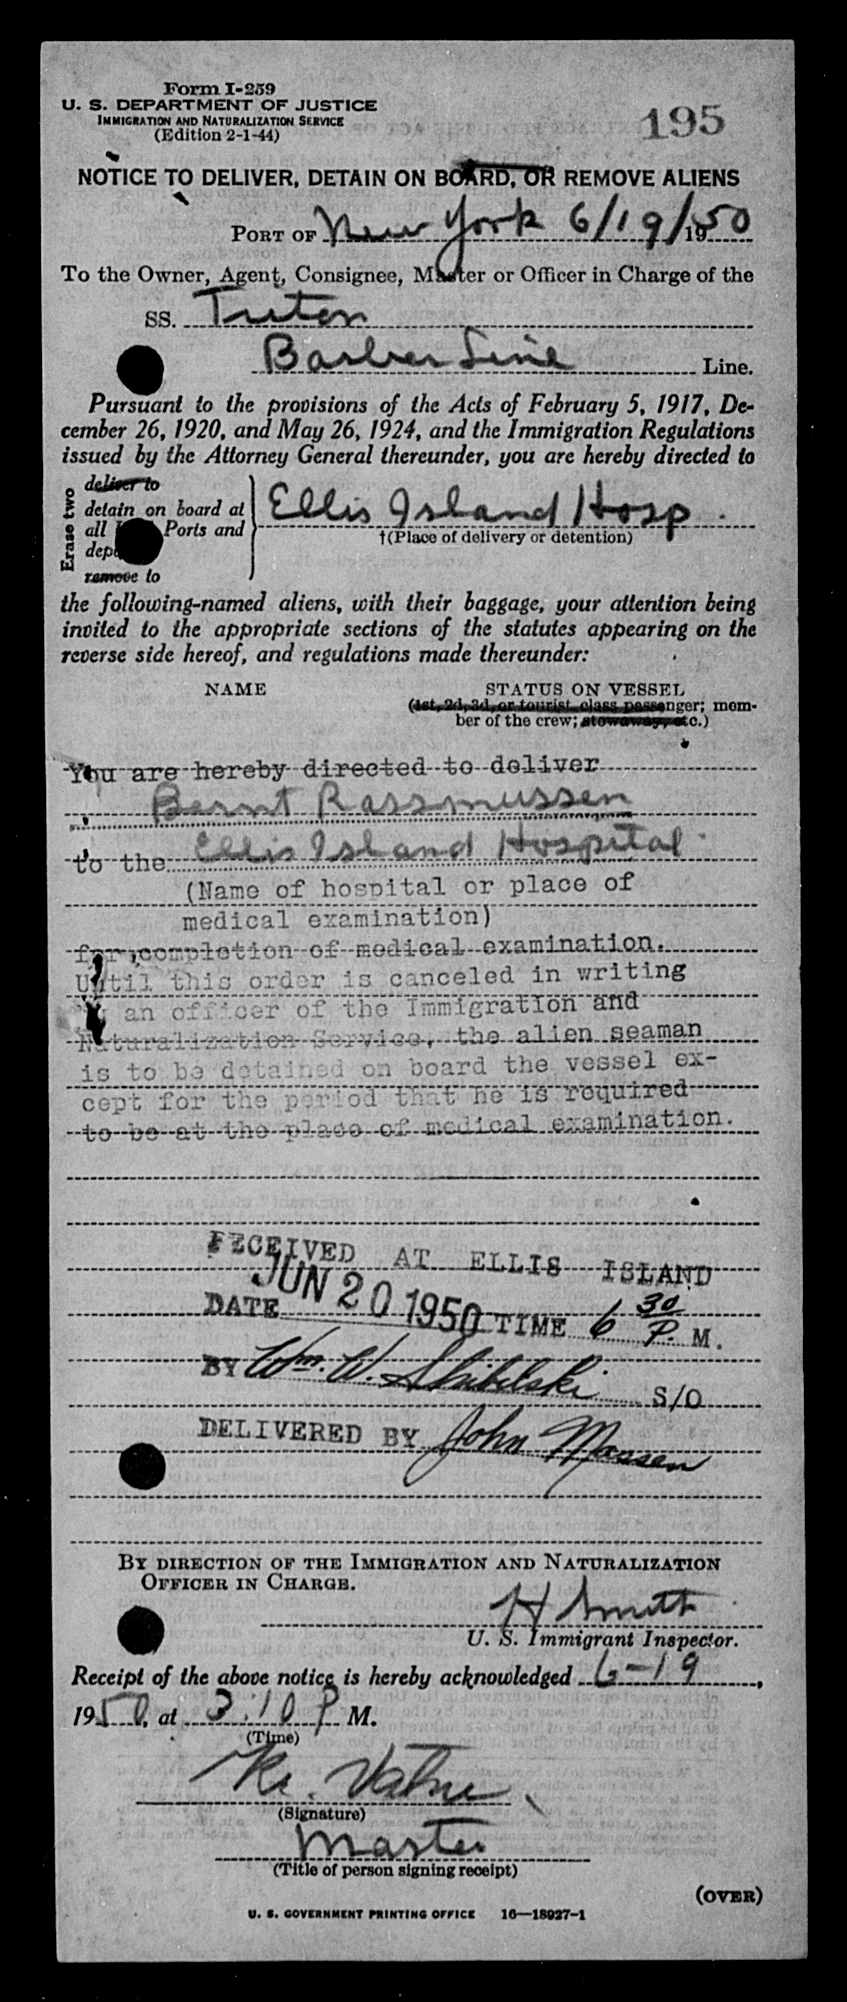 Form I-259
U. S. DEPARTMENT OF JUSTICE
IMMIGRATION AND NATURALIZATION SERVICE
(Edition 2-1-44)
195
NOTICE TO DELIVER, DETAIN ON BOARD, OR REMOVE ALIENS
PORT OF New York 6/19/1950
To the Owner, Agent, Consignee, Master or Officer in Charge of the
SS. Triton
Barber Line Line.
Pursuant to the provisions of the Acts of February 5, 1917, De-
cember 26, 1920, and May 26, 1924, and the Immigration Regulations
issued by the Attorney General thereunder, you are hereby directed to
Erase two
deliver to
detain on board at
all Ports and
remove to
Ellis Island Hosp.
†(Place of delivery or detention)
the following-named aliens, with their baggage, your attention being
invited to the appropriate sections of the statutes appearing on the
reverse side hereof, and regulations made thereunder:
NAME
STATUS ON VESSEL
(1st, 2d, 3d, or tourist class passenger; mem-
ber of the crew; stowaway, etc.)
You are hereby directed to deliver
Bernt Rassmussen
to the Ellis Island Hospital
(Name of hospital or place of
medical examination)
for completion of medical examination.
Until this order is canceled in writing
by an officer of the Immigration and
Naturalization Service, the alien seaman
is to be detained on board the vessel ex-
cept for the period that he is required
to be at the place of medical examination.
RECEIVED AT ELLIS ISLAND
DATE JUN 20 1950 TIME 6 30 P. M.
BY Wm. W. Skibilski S/O
DELIVERED BY John Massen
BY DIRECTION OF THE IMMIGRATION AND NATURALIZATION
OFFICER IN CHARGE.
H Smith
U. S. Immigrant Inspector.
Receipt of the above notice is hereby acknowledged 6-19,
1950, at 3:10 P M.
(Time)
(Signature)
Master
(Title of person signing receipt)
(OVER)
U. S. GOVERNMENT PRINTING OFFICE 16—18927-1